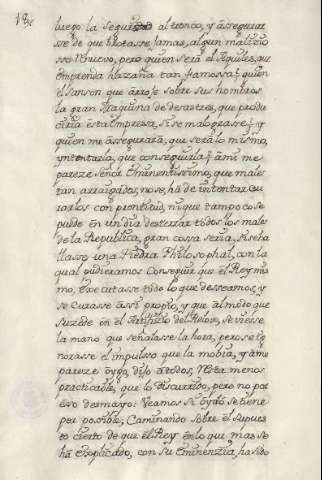 luego la segur al tronco, y assegurar
sse de que brotasse Jamas, algun maligno
renuevo, pero quien será el Aquiles, que
emprenda hazaña tan famossa? quien
el Sanson que arroje sobre sus hombros
la gran maquina de desastres, que produ
ciria esta empressa, si se malograsse? y
quien me assegurará, que será lo mismo,
yntentarla, que conseguirla? á mi me
pareze Señor Eminentissimo, que males
tan arraigados, no se, há de intentar cu
rarlos con promtitud, ni que tampoco se
puede en un dia desterrar todos los males
de la Republica, gran cossa seria, si se ha
llasse una Piedra Philosophal, con la
qual pudieramos conseguir que el Rey mis
mo, executasse todo lo que desseamos, y
se curasse assi propio, y que al modo que
suzede en el Artificio del Relox, se viesse
la mano que señalasse la hora, pero se ig
norasse el impulso que la mobia, y á mi me
pareze oygo, dijo á todos, no era menos
practicable, que lo discurrido, pero no por
esso desmayo: Veamos si oydo se tiene
por possible, Caminando sobre el supues
to cierto de que el Rey en lo que mas se
há explicado, con su Eminenzia, ha sido